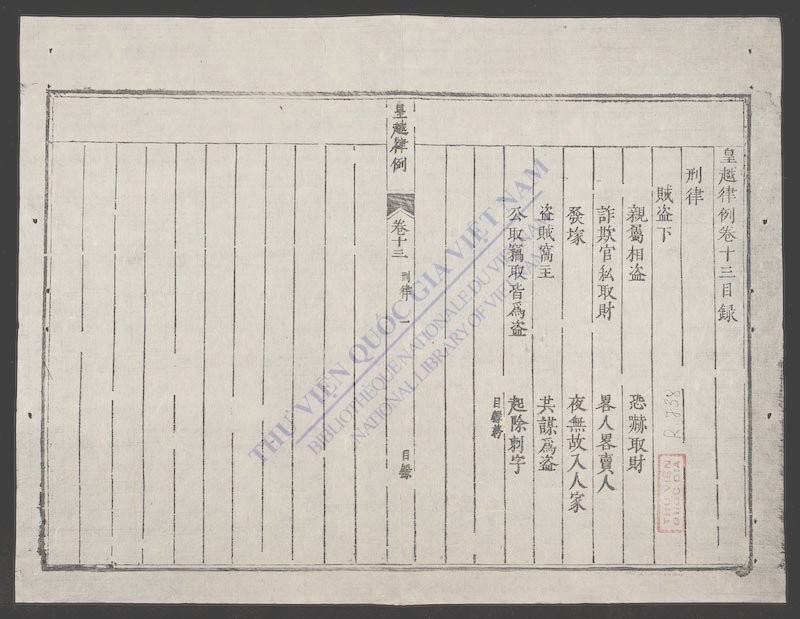 皇越律例卷十三目録
刑律
賊盗下
親屬相盗 恐嚇取財
詐欺官私取財 畧人畧賣人
發塚 夜無故入人家
盗賊窩主 共謀爲盗
公取竊取皆爲盗 起除刺字
目録終
皇越律例
卷十三 刑律 一 目録
R 758
THƯ VIỆN
QUỐC GIA
THƯ VIỆN QUỐC GIA VIỆT NAM
BIBLIOTHÈQUE NATIONALE DU VIETNAM
NATIONAL LIBRARY OF VIETNAM